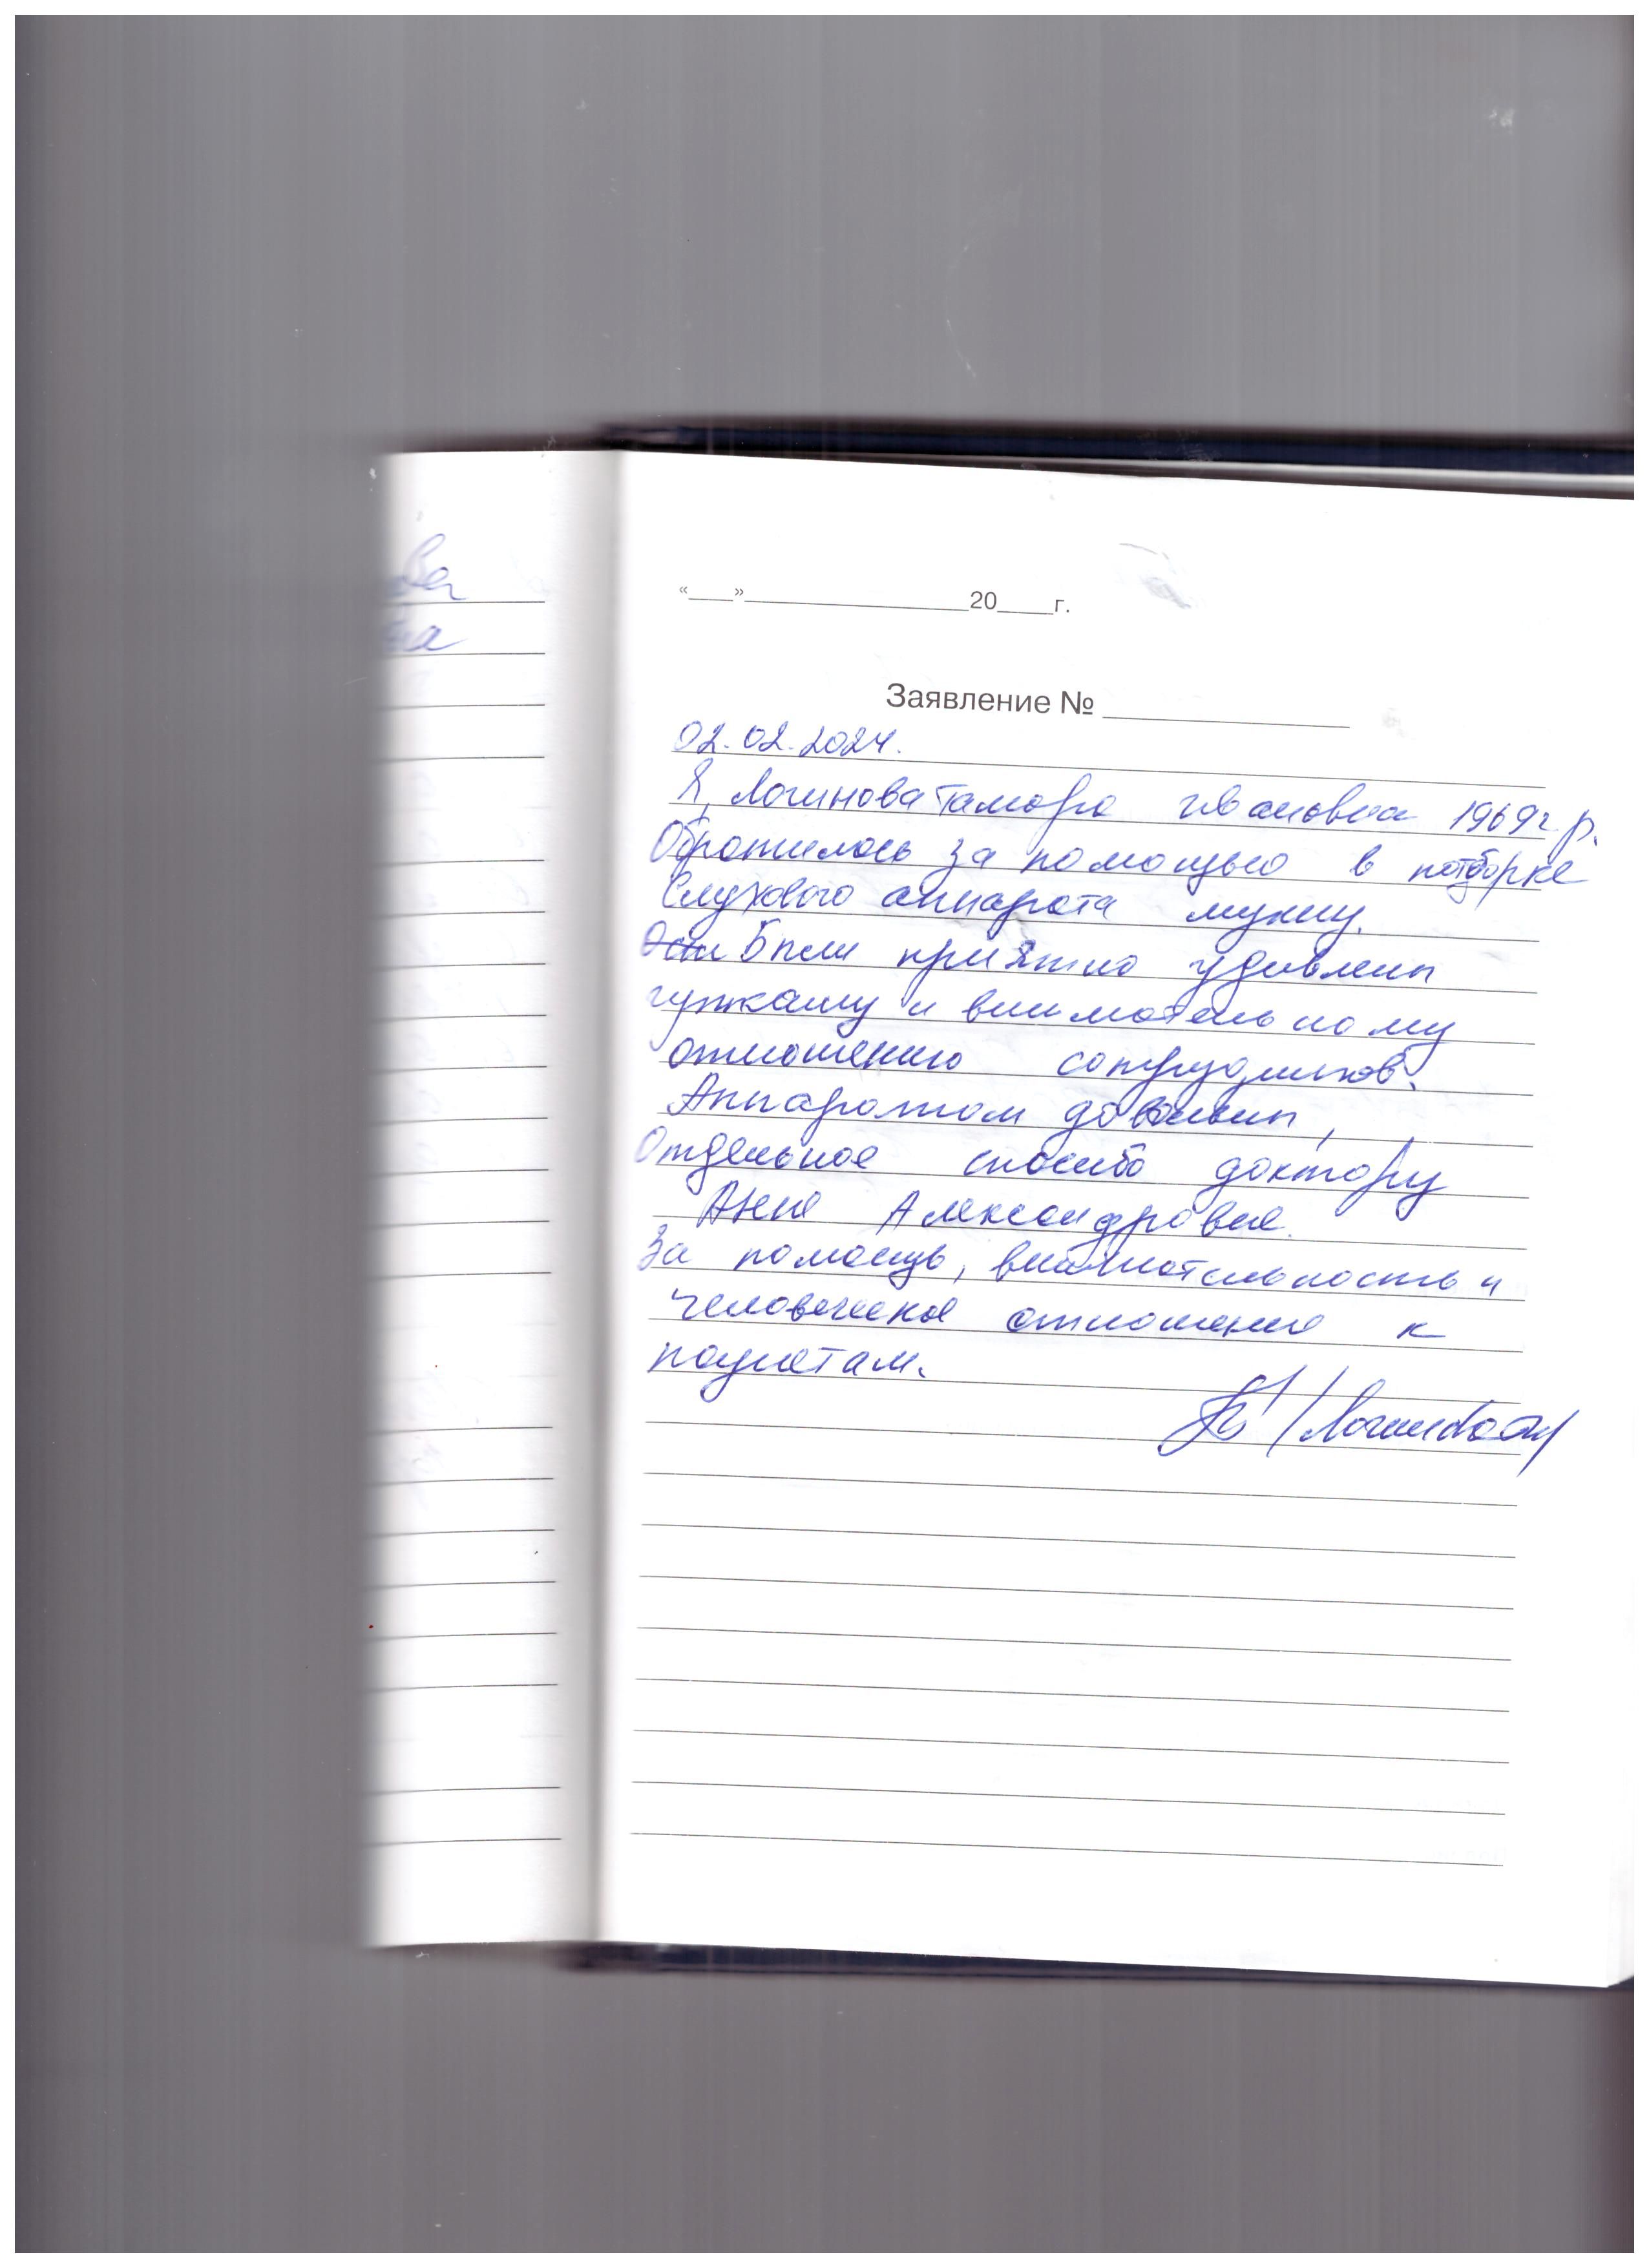 «___»________________20____г.
Заявление № ________
02.02.2024.
Я, Логинова Тамара Ивановна 1969г.р.
Обратилась за помощью в подборке
Слухового аппарата мужу.
Были приятно удивлены
чуткаму и внимательному
отношению сотрудников.
Аппаратом довольны,
Отдельное спасибо доктору
Анне Александровне.
За помощь, внимательность и
человеческое отношение к
пациетам.
/Логинова